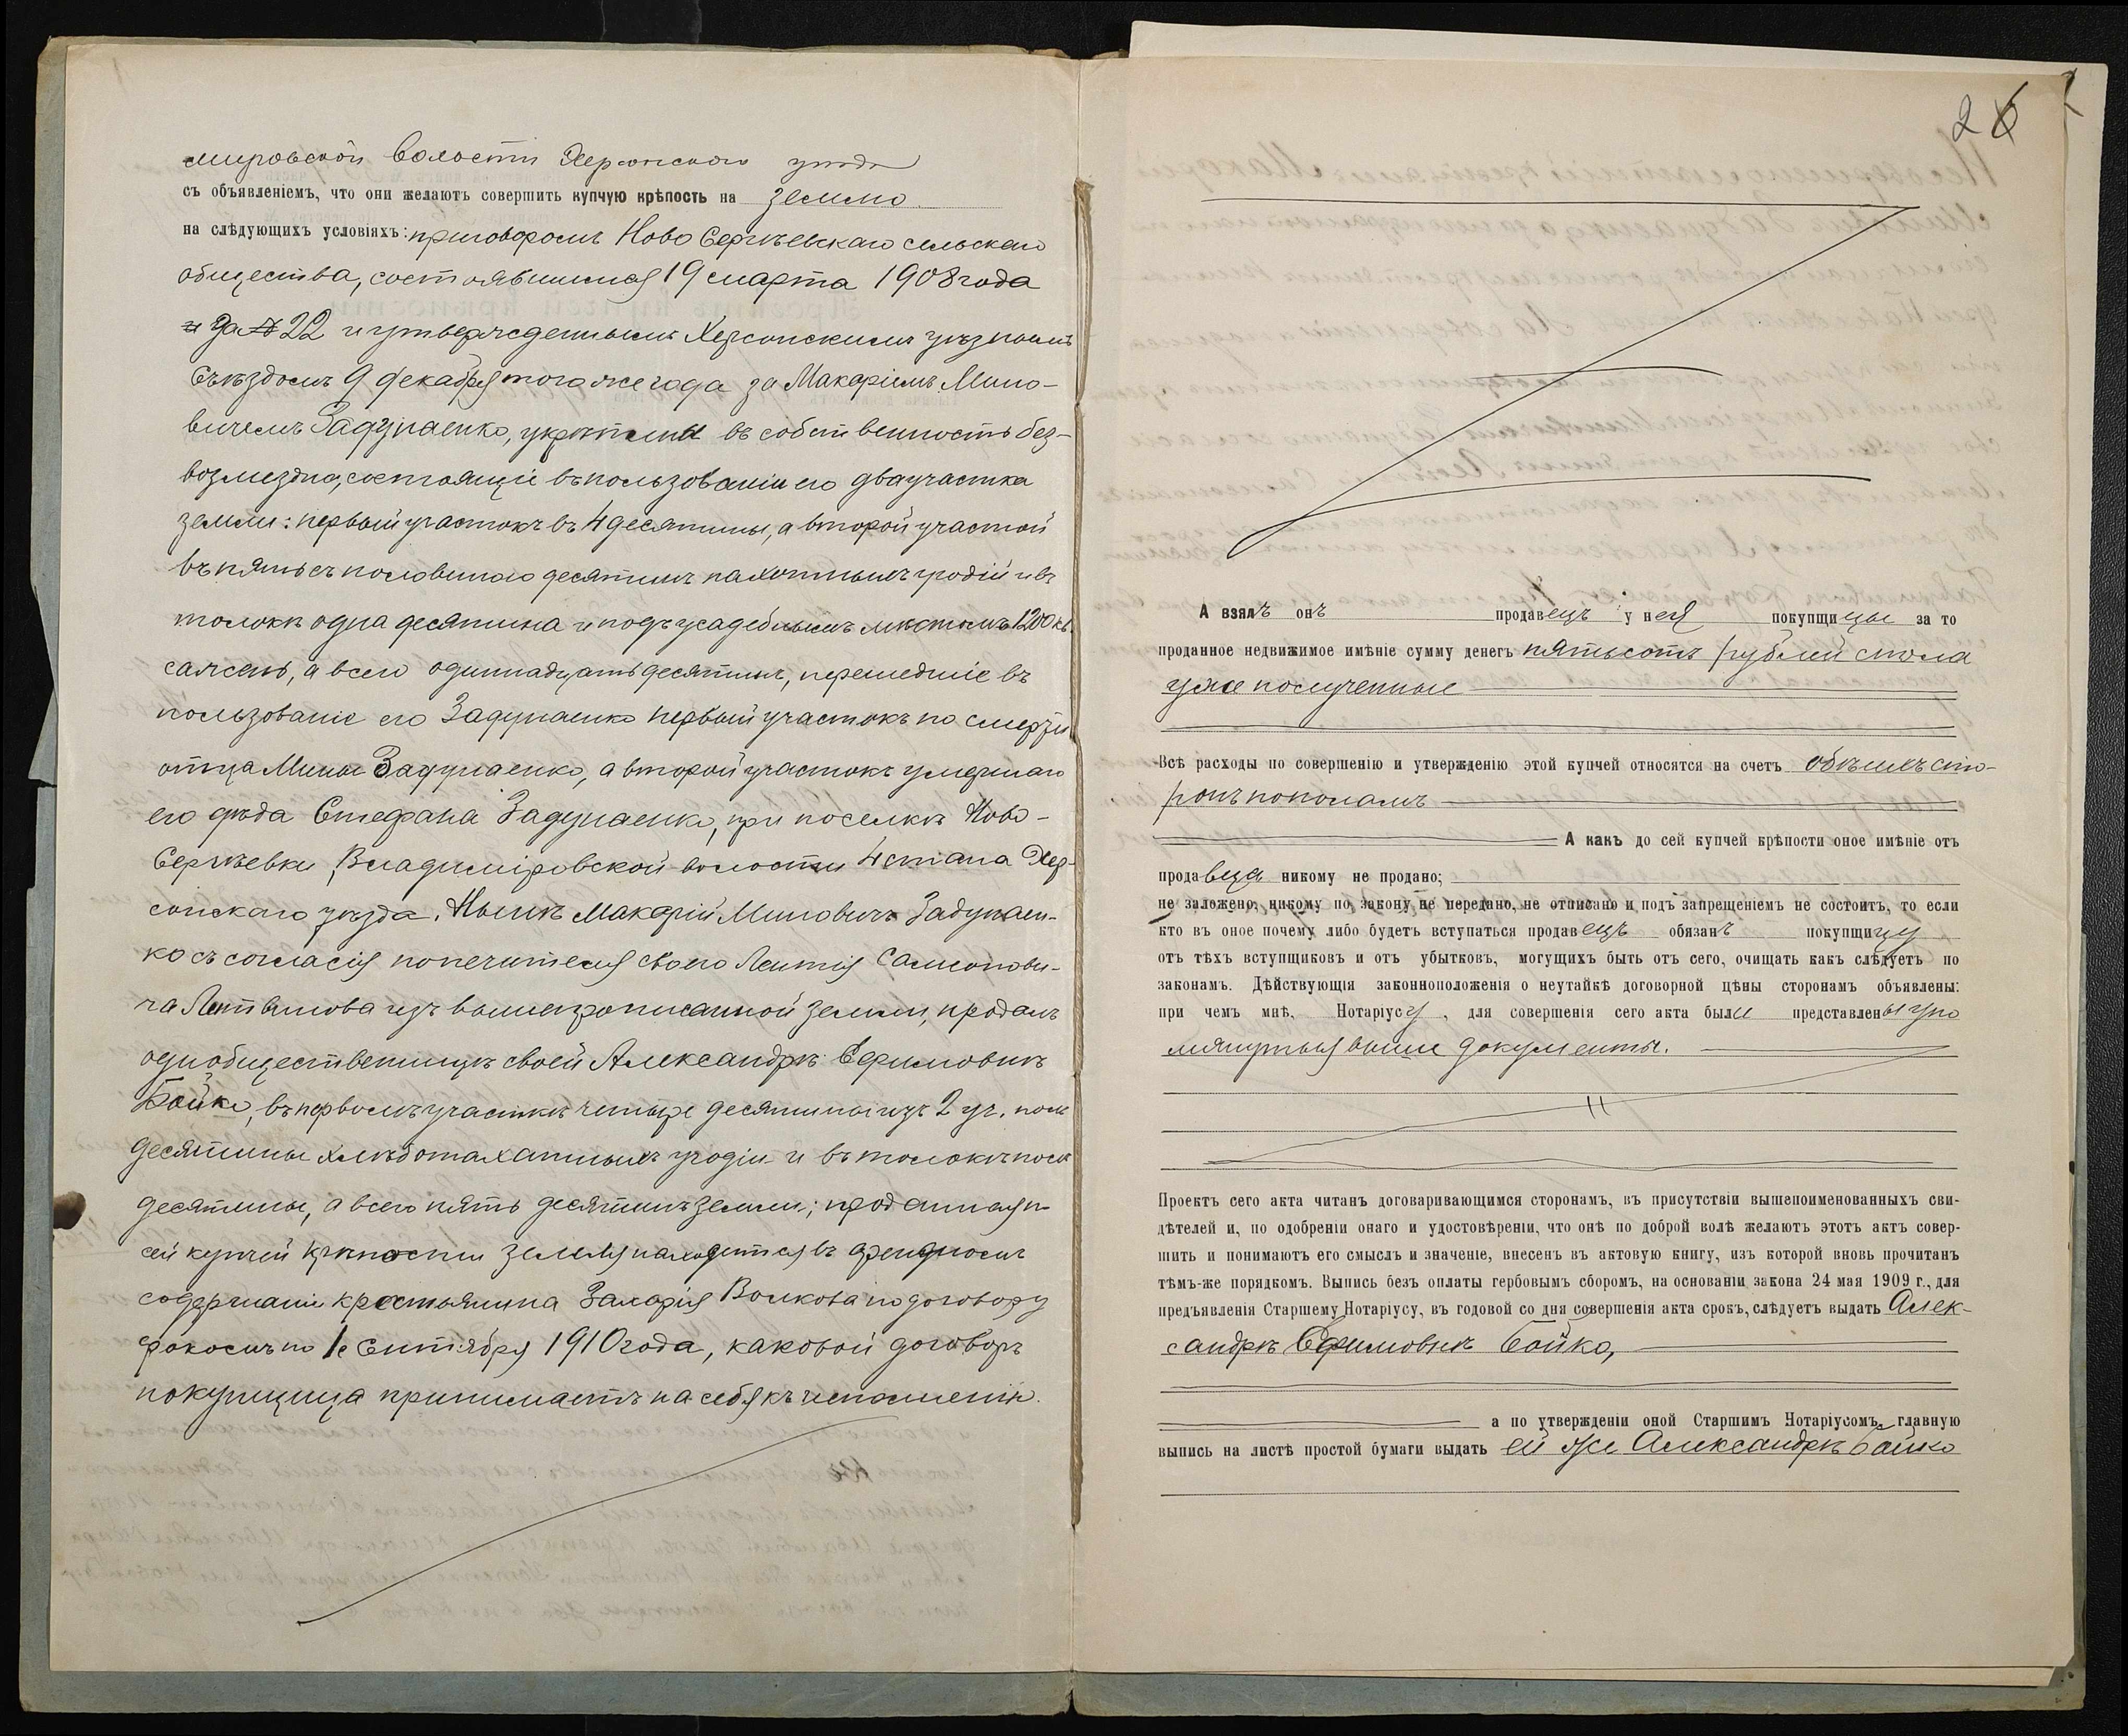 мировской волости Херсонского уезда
съ объявленіемъ, что они желаютъ совершить купчую крѣпость на землю
на слѣдующихъ условіяхъ: приговоромъ Ново Сергѣевскаго сельскаго
общества, состоявшимся 19 марта 1908 года
за № 22 и утвержденнымъ Херсонскимъ уѣзднымъ
Съѣздомъ 9 декабря того же года за Макаріемъ Мино-
вичемъ Задунаенко, укрѣплены въ собственность без-
возмездно, состоящіе въ пользованіи его два участка
земли: первый участокъ въ 4 десятины, а второй участок
въ пять съ половиною десятинъ пахотныхъ угодій и въ
толокѣ одна десятина и подъ усадебнымъ мѣстомъ 1200 кв.
сажень, а всего одиннадцать десятинъ, перешедшіе въ
пользованіе его Задунаенко первый участокъ по смерти
отца Мины Задунаенко, а второй участокъ умершаго
его дѣда Стефана Задунаенко, при поселкѣ Ново-
Сергѣевки, Владиміровской волости 4 стана Хер-
сонскаго уѣзда. Нынѣ Макарій Миновичъ Задунаен-
ко съ согласія попечителя своего Леитія Самсонови-
ча Литвинова изъ вышепрописанной земли, продалъ
однообщественницѣ своей Александрѣ Ефимовнѣ
Бойко, въ первомъ участкѣ четыре десятины изъ 2 уч. пол
десятины хлѣбопахатныхъ угодій и въ толокѣ пол
десятины, а всего пять десятинъ земли; проданная п
сей купчей крѣпости земля находится въ арендномъ
содержаніи крестьянина Захарія Волкова по договору
срокомъ по 1е Сентября 1910 года, каковой договоръ
покупщица принимаетъ на себя къ исполненію.
2 6
А взялъ онъ продавецъ у нея покупщицы за то
проданное недвижимое имѣніе сумму денегъ пятьсотъ рублей спола
уже полученные
Всѣ расходы по совершенію и утвержденію этой купчей относятся на счетъ обѣихъ сто-
ронъ пополамъ
А какъ до сей купчей крѣпости оное имѣніе отъ
продавца никому не продано;
не заложено, никому по закону не передано, не отписано и подъ запрещеніемъ не состоитъ, то если
кто въ оное почему либо будетъ вступаться продавецъ обязанъ покупщицу
отъ тѣхъ вступщиковъ и отъ убытковъ, могущихъ быть отъ сего, очищать какъ слѣдуетъ по
законамъ. Дѣйствующія законноположенія о неутайкѣ договорной цѣны сторонамъ объявлены:
при чемъ мнѣ, Нотаріусу, для совершенія сего акта были представлены упо
мянутыя выше документы.
Проектъ сего акта читанъ договаривающимся сторонамъ, въ присутствіи вышепоименованныхъ сви-
дѣтелей и, по одобреніи онаго и удостовѣреніи, что онѣ по доброй волѣ желаютъ этотъ актъ совер-
шить и понимаютъ его смыслъ и значеніе, внесенъ въ актовую книгу, изъ которой вновь прочитанъ
тѣмъ-же порядкомъ. Выпись безъ оплаты гербовымъ сборомъ, на основаніи закона 24 мая 1909 г., для
предъявленія Старшему Нотаріусу, въ годовой со дня совершенія акта срокъ, слѣдуетъ выдать Алек-
сандрѣ Ефимовнѣ Бойко,
а по утвержденіи оной Старшимъ Нотаріусомъ, главную
выпись на листѣ простой бумаги выдать ей же Александрѣ Бойко